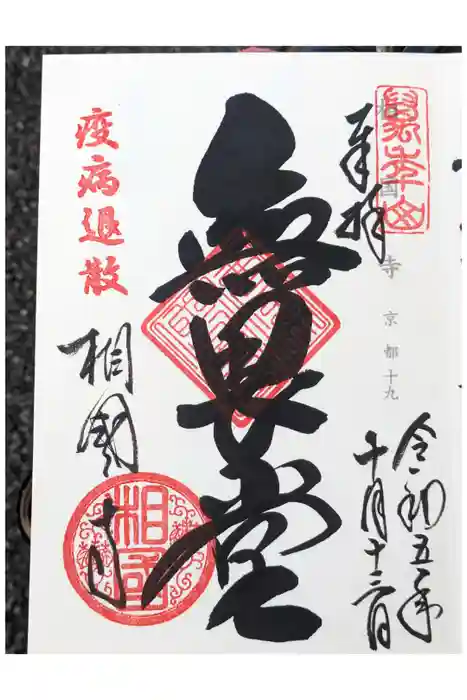 萬年山
奉拝
相国寺 京都十九
令和五年
十月十三日
無畏堂
疫病退散
相國寺
相國